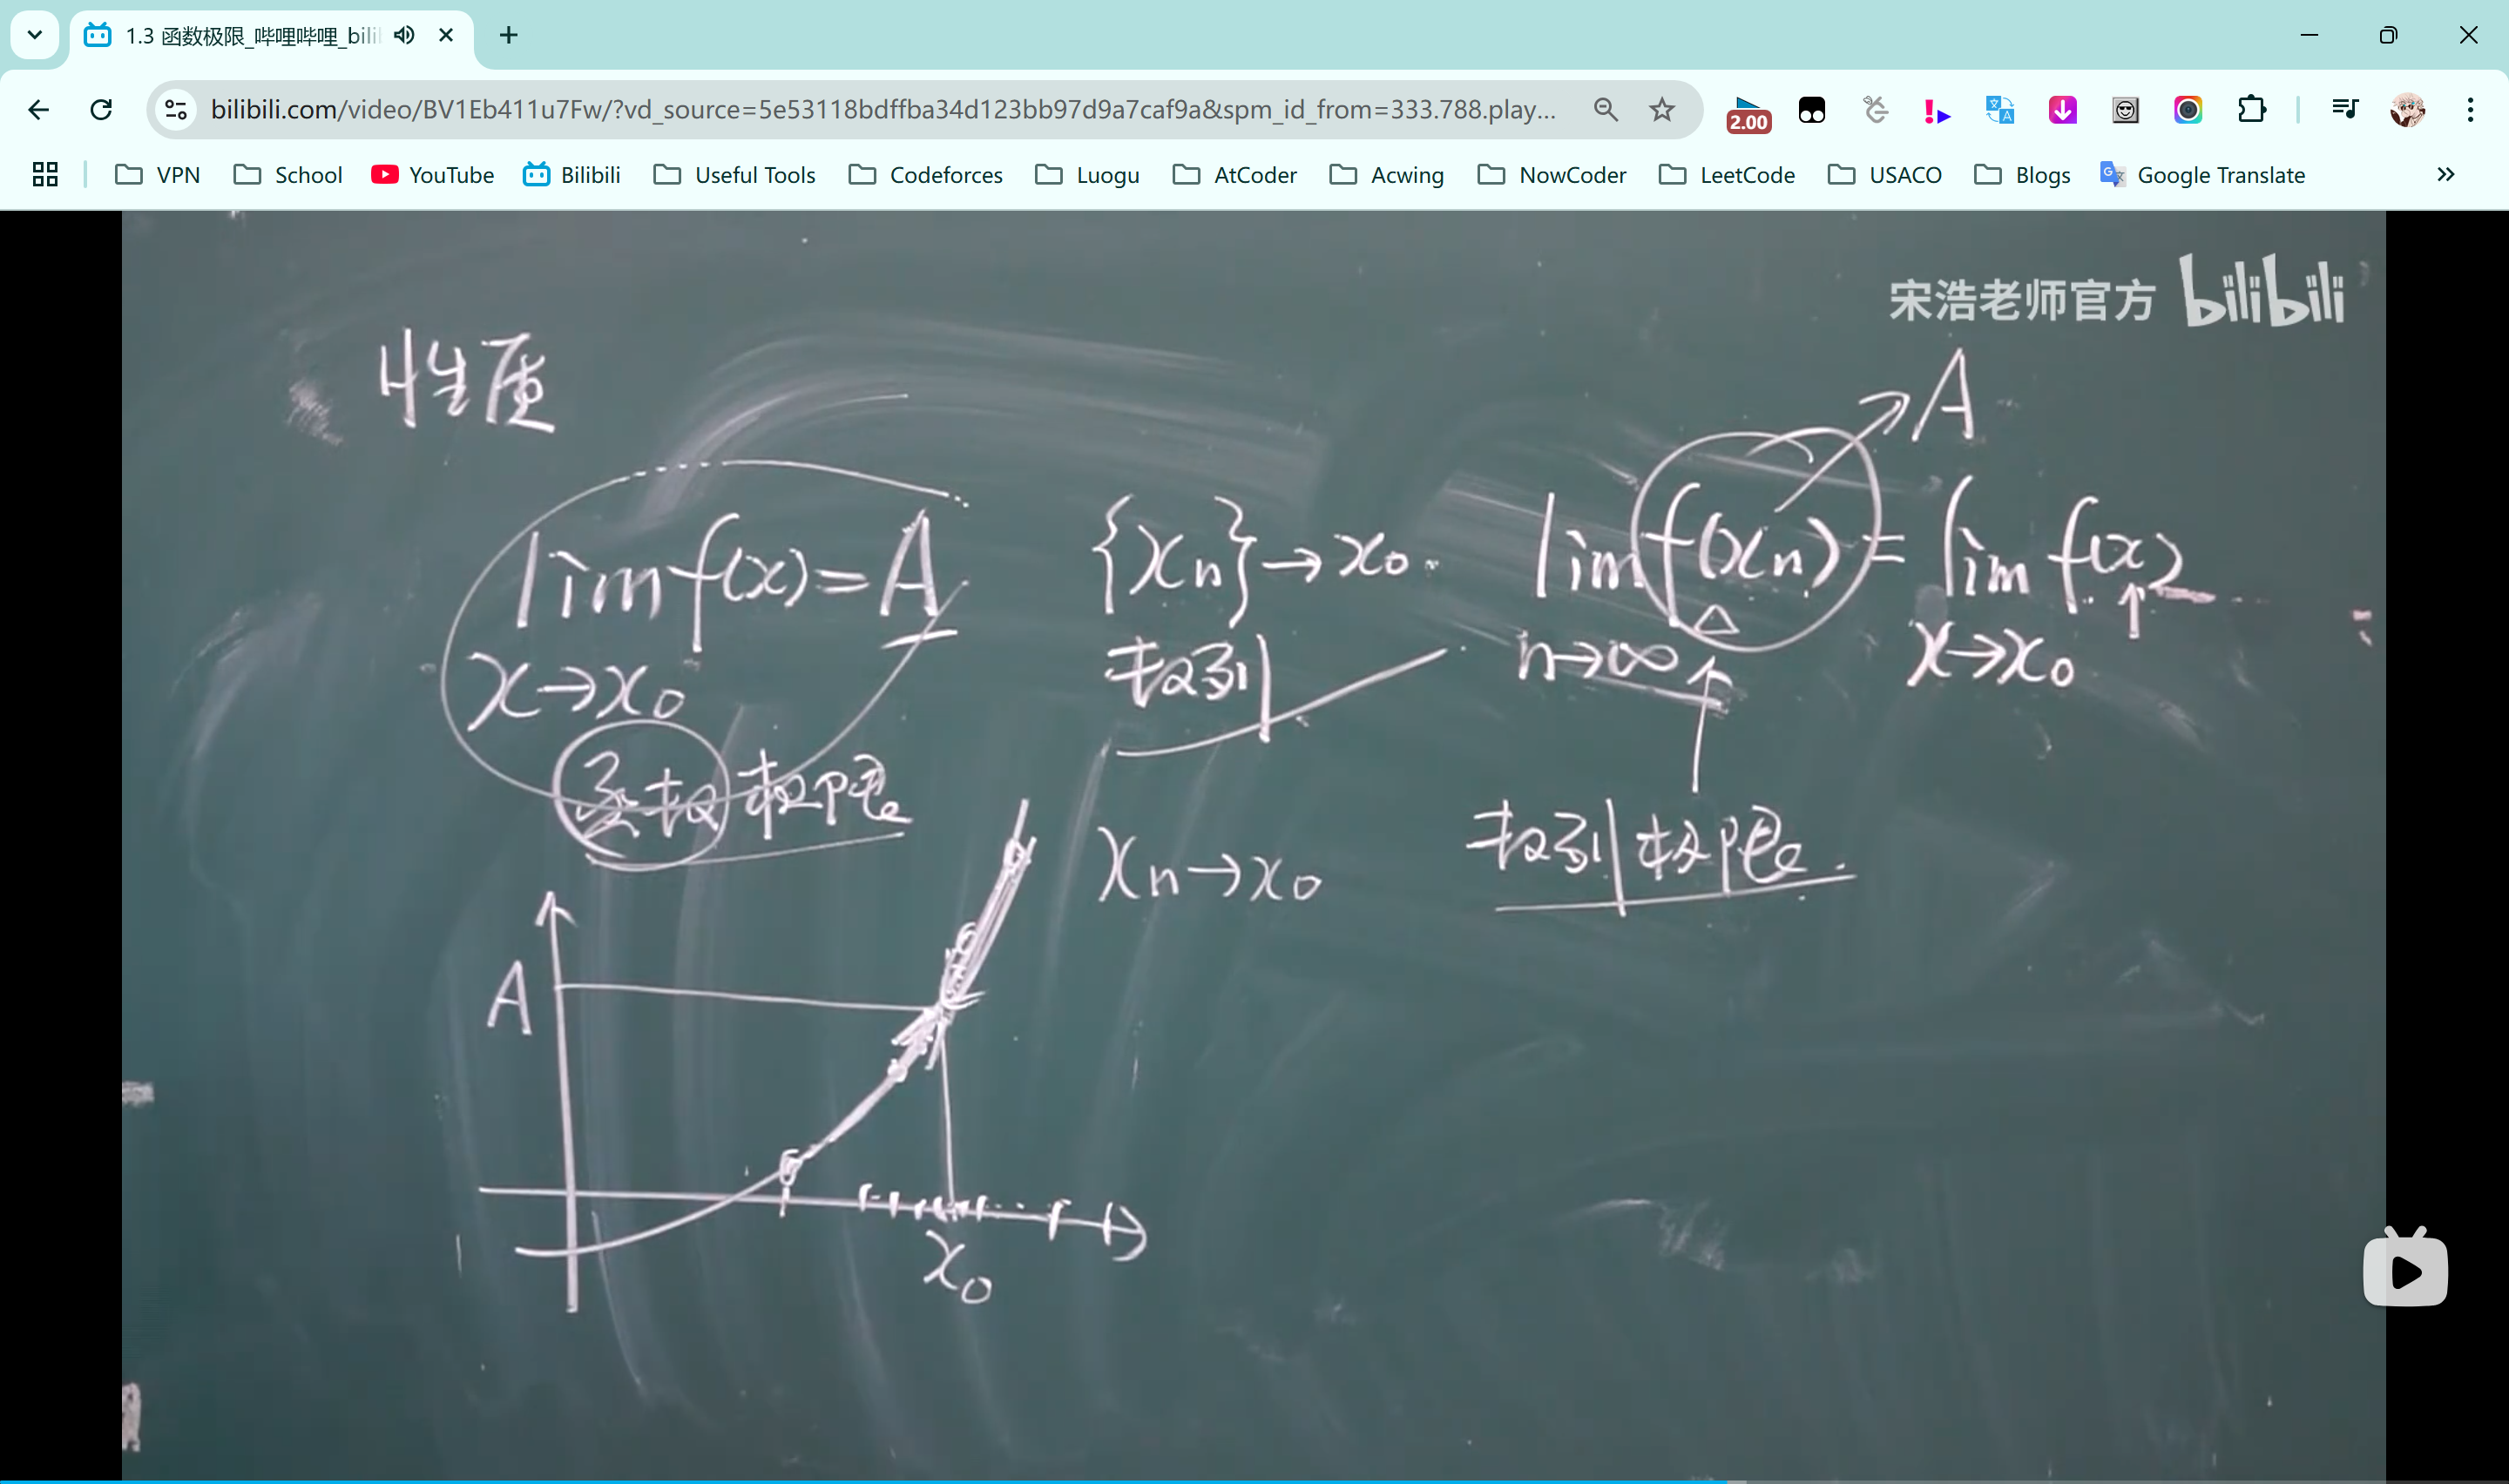 1.3 函数极限_哔哩哔哩_bili
bilibili.com/video/BV1Eb411u7Fw/?vd_source=5e53118bdffba34d123bb97d9a7caf9a&spm_id_from=333.788.play...
2.00
VPN School YouTube Bilibili Useful Tools Codeforces Luogu AtCoder Acwing NowCoder LeetCode USACO Blogs Google Translate
宋浩老师官方 bilibili
性质
A
lim f(x)=A {xn}→x0. lim f(xn)=lim f(x)
x→x0 数列 n→∞ x→x0
函数极限 数列极限.
xn→x0
A
x0